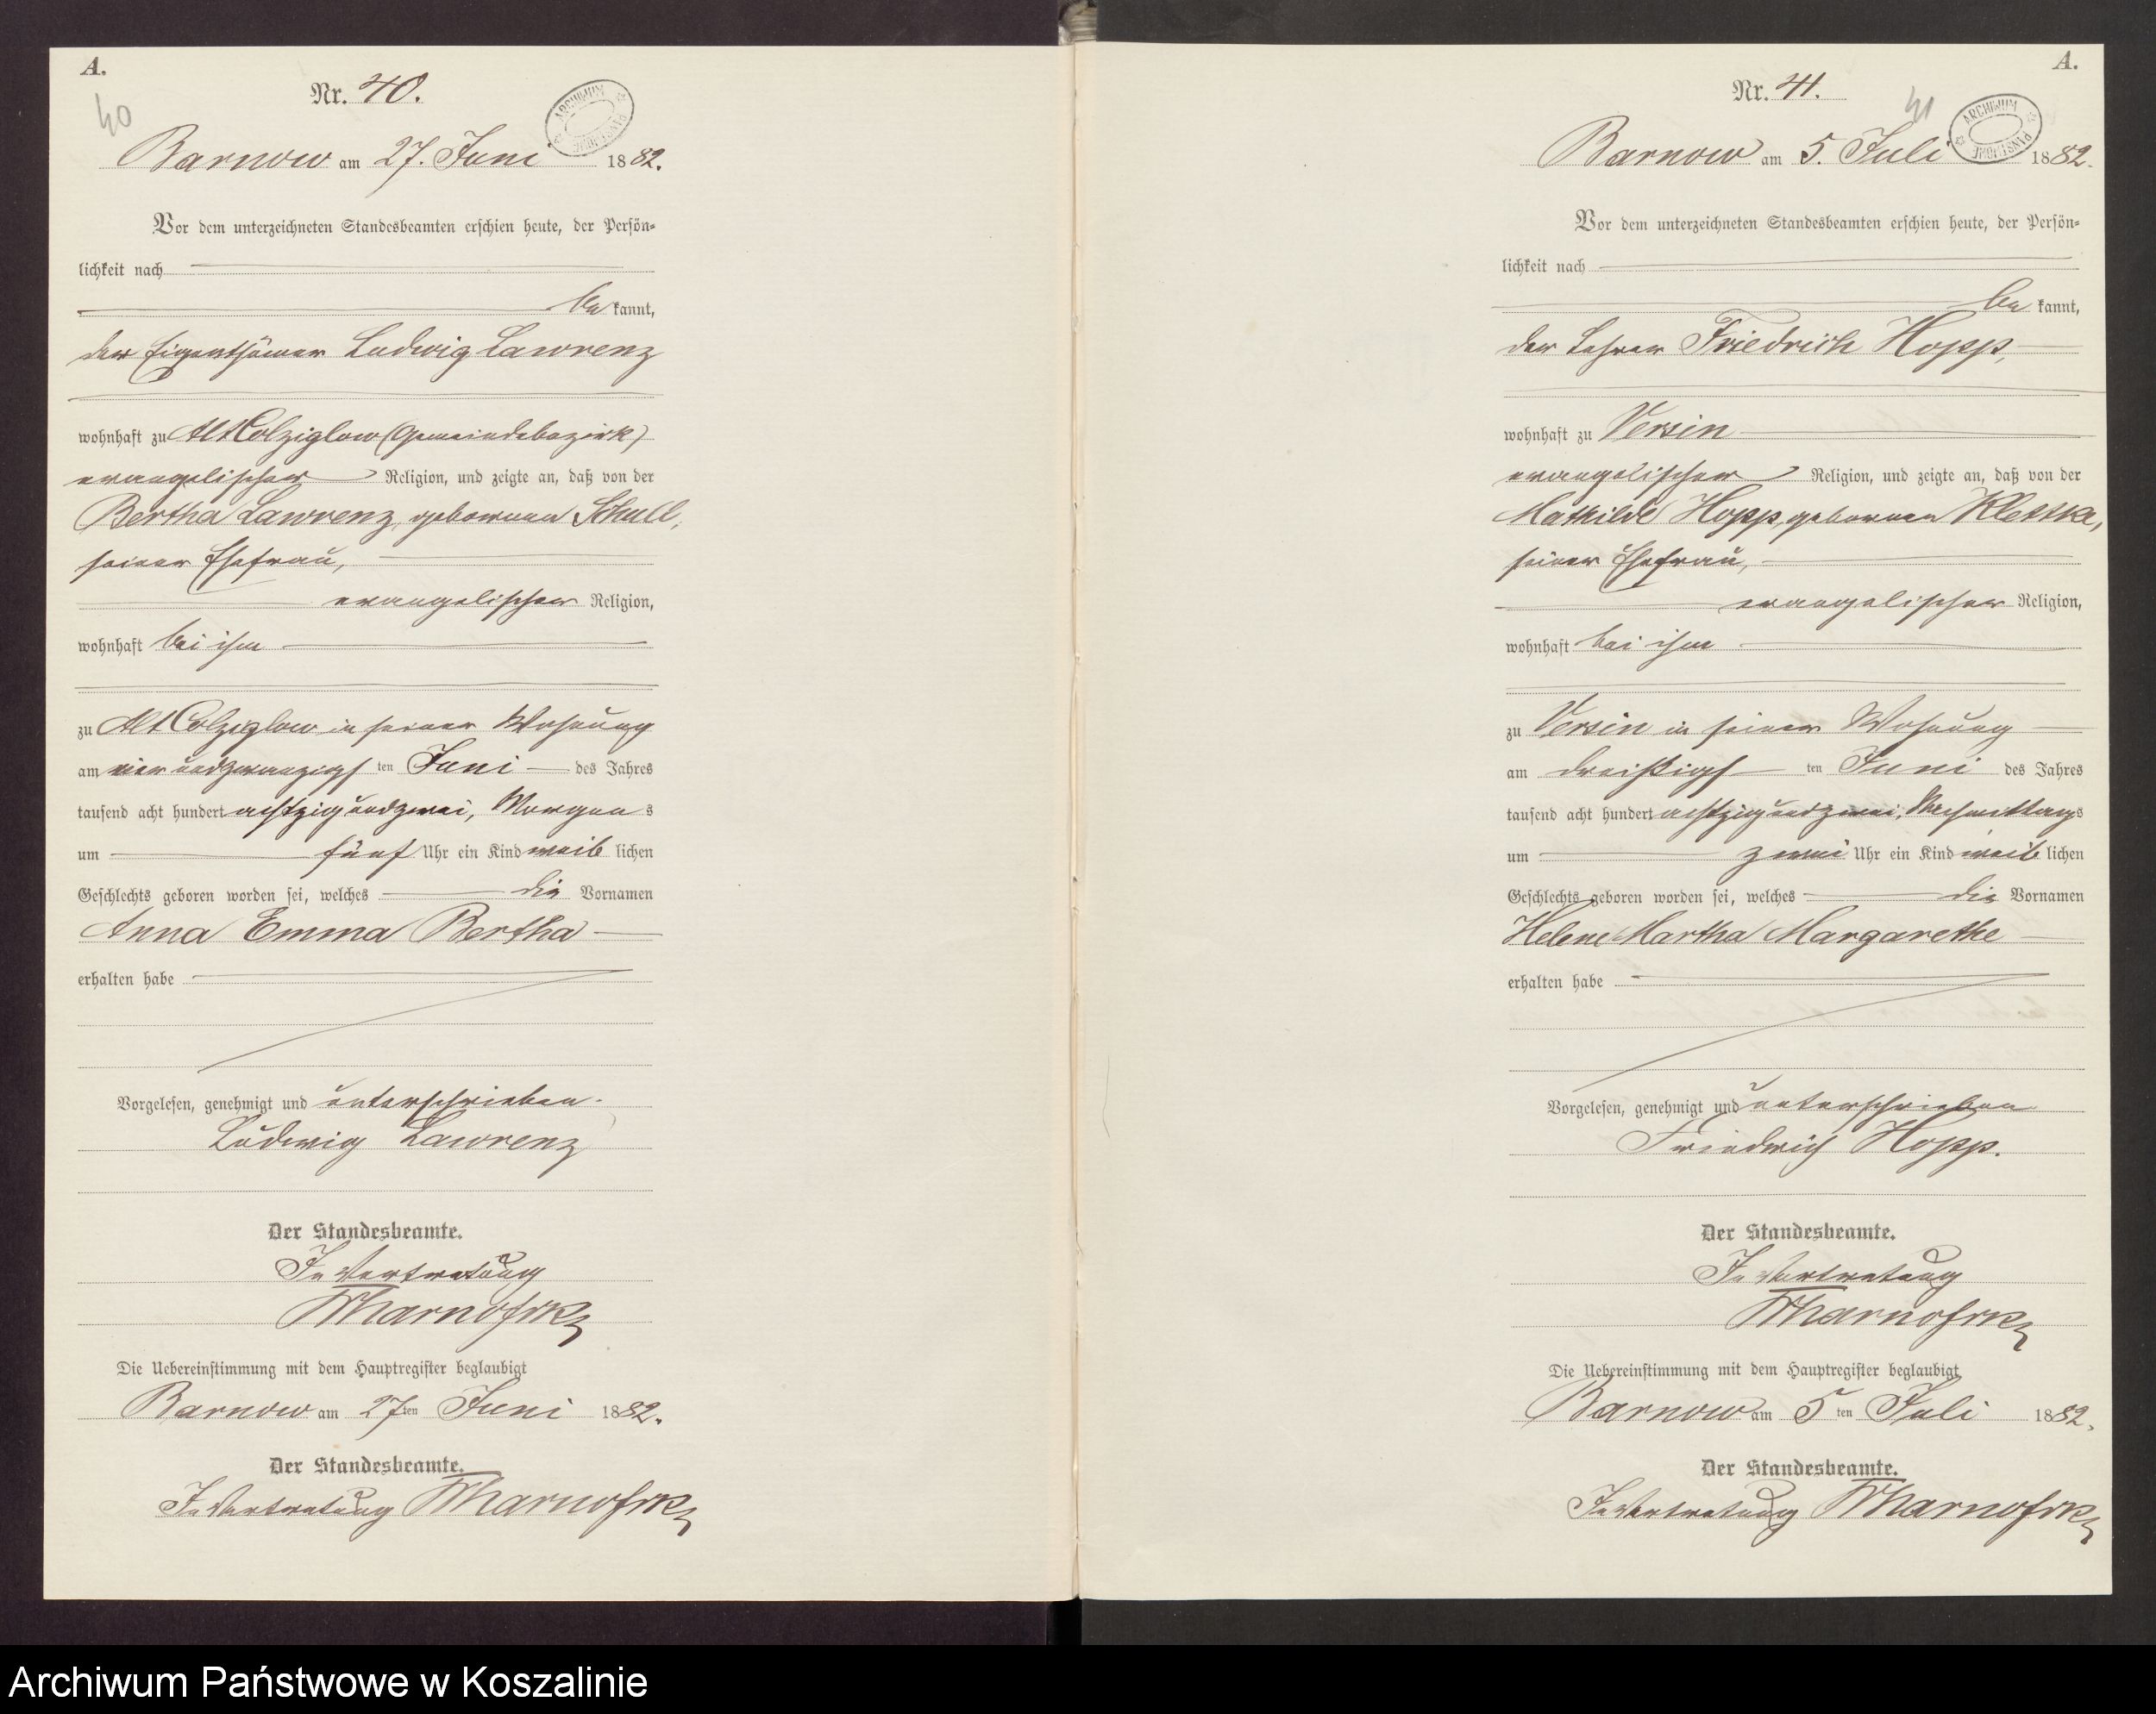 A.
40
Nr. 40.
ARCHIWUM PAŃSTWOWE
Barnow am 27. Juni 1882.
Vor dem unterzeichneten Standesbeamten erschien heute, der Persön-
lichkeit nach
be kannt,
der Eigenthümer Ludwig Lawrenz
wohnhaft zu Alt Colziglow (Gemeindebezirk)
evangelischer Religion, und zeigte an, daß von der
Bertha Lawrenz, geborenen Schull,
seiner Ehefrau,
evangelischer Religion,
wohnhaft bei ihm
zu Alt Colziglow in seiner Wohnung
am vier und zwanzigs ten Juni des Jahres
tausend acht hundert achtzig und zwei, Morgen s
um fünf Uhr ein Kind weib lichen
Geschlechts geboren worden sei, welches die Vornamen
Anna Emma Bertha
erhalten habe
Vorgelesen, genehmigt und unterschrieben.
Ludwig Lawrenz
Der Standesbeamte.
In Vertretung
Die Uebereinstimmung mit dem Hauptregister beglaubigt
Barnow am 27 ten Juni 1882.
Der Standesbeamte.
In Vertretung
A.
41
Nr. 41.
ARCHIWUM PAŃSTWOWE
Barnow am 5. Juli 1882.
Vor dem unterzeichneten Standesbeamten erschien heute, der Persön-
lichkeit nach
be kannt,
der Lehrer Friedrich Hopp,
wohnhaft zu Versin
evangelischer Religion, und zeigte an, daß von der
Mathilde Hopp, geborenen Kletska,
seiner Ehefrau,
evangelischer Religion,
wohnhaft bei ihm
zu Versin in seiner Wohnung
am dreißigs ten Juni des Jahres
tausend acht hundert achtzig und zwei, Nachmittag s
um zwei Uhr ein Kind weib lichen
Geschlechts geboren worden sei, welches die Vornamen
Helene Martha Margarethe
erhalten habe
Vorgelesen, genehmigt und unterschrieben
Friedrich Hopp.
Der Standesbeamte.
In Vertretung
Die Uebereinstimmung mit dem Hauptregister beglaubigt
Barnow am 5 ten Juli 1882.
Der Standesbeamte.
In Vertretung
Archiwum Państwowe w Koszalinie